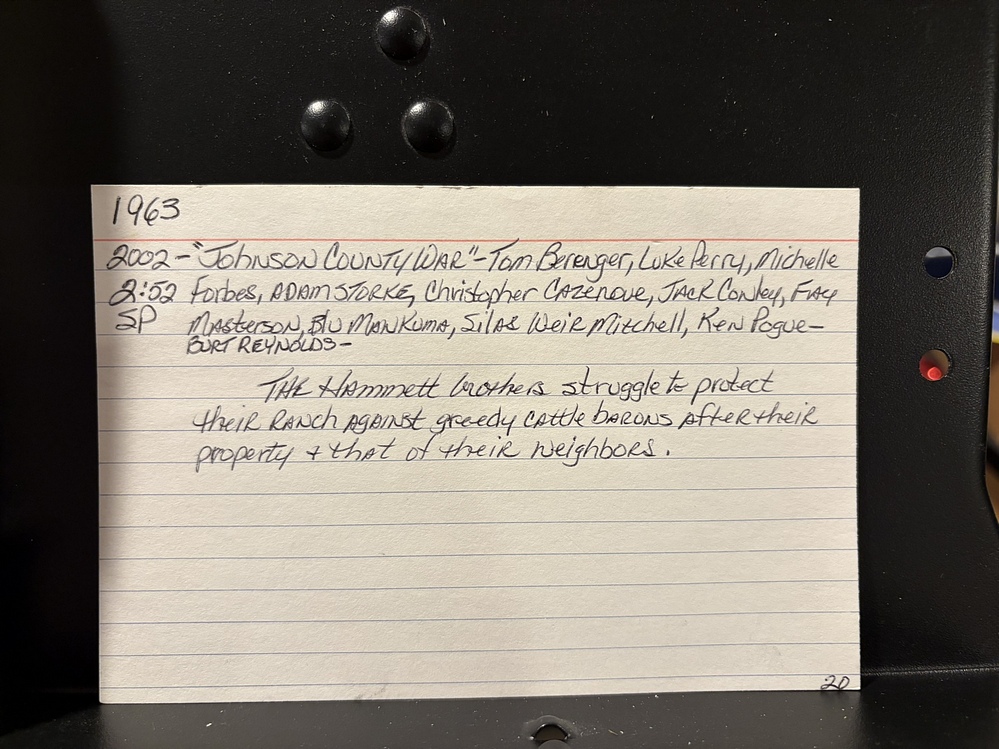 1963
2002-"Johnson County War"-Tom Berenger, Luke Perry, Michelle
2:52 Forbes, ADAM STORKE, Christopher CAZENOVE, JACK Conley, FAY
SP Masterson, Blu MANKUMA, Silas Weir Mitchell, Ken Pogue-
BURT REYNOLDS-
THE HAMMETT brothers struggle to protect
their RANCH AGAINST greedy CATTLE BARONS AFTER their
property + that of their neighbors.
20